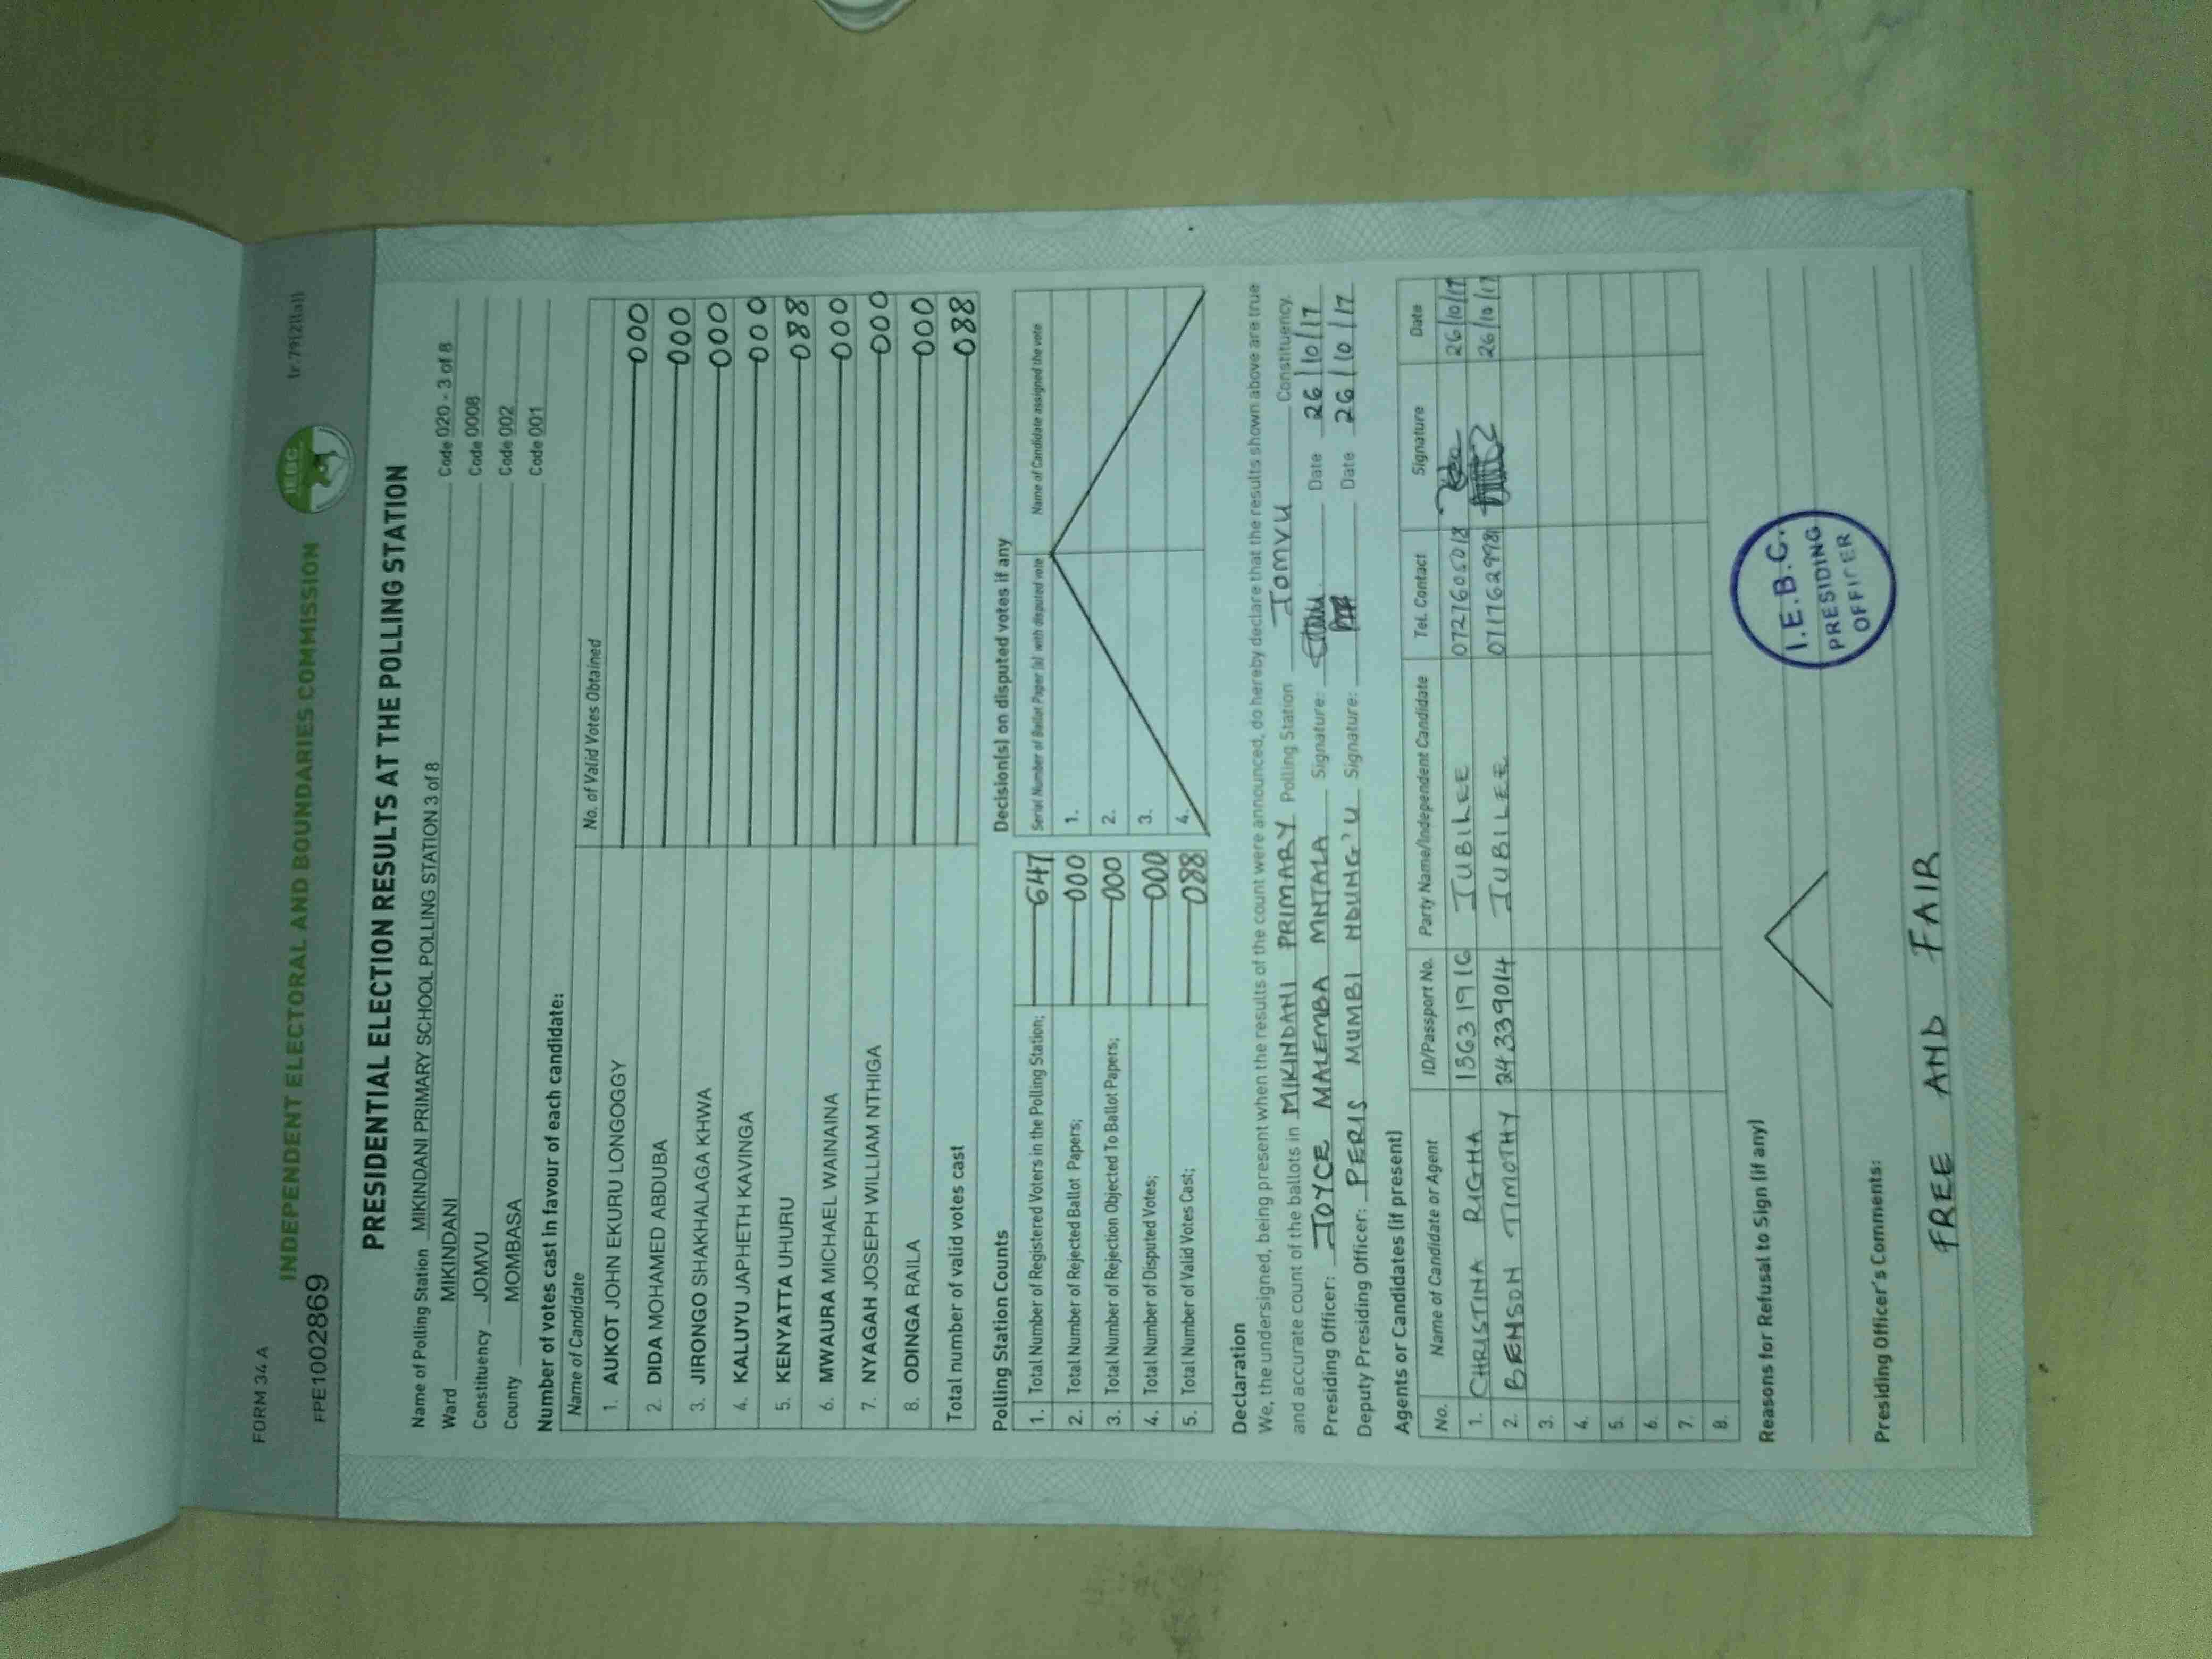 FORM 34 A
FPE1002869
INDEPENDENT ELECTORAL AND BOUNDARIES COMMISSION
IEBC
PRESIDENTIAL ELECTION RESULTS AT THE POLLING STATION
Name of Polling Station MIKINDANI PRIMARY SCHOOL POLLING STATION 3 of 8
Ward MIKINDANI Code 020 - 3 of 8
Constituency JOMVU Code 0008
County MOMBASA Code 002
Code 001
Number of votes cast in favour of each candidate:
Name of Candidate No. of Valid Votes Obtained
1. AUKOT JOHN EKURU LONGOGGY 000
2. DIDA MOHAMED ABDUBA 000
3. JIRONGO SHAKHALAGA KHWA 000
4. KALUYU JAPHETH KAVINGA 000
5. KENYATTA UHURU 088
6. MWAURA MICHAEL WAINAINA 000
7. NYAGAH JOSEPH WILLIAM NTHIGA 000
8. ODINGA RAILA 000
Total number of valid votes cast 088
Polling Station Counts
1. Total Number of Registered Voters in the Polling Station; 647
2. Total Number of Rejected Ballot Papers; 000
3. Total Number of Rejection Objected To Ballot Papers; 000
4. Total Number of Disputed Votes; 000
5. Total Number of Valid Votes Cast; 088
Decision(s) on disputed votes if any
Serial Number of Ballot Paper (s) with disputed vote Name of Candidate assigned the vote
1.
2.
3.
4.
Declaration
We, the undersigned, being present when the results of the count were announced, do hereby declare that the results shown above are true
and accurate count of the ballots in MIKINDANI PRIMARY Polling Station JOMVU Constituency.
Presiding Officer: JOYCE MALEMBA MNTALA Signature: Date 26/10/17
Deputy Presiding Officer: PERIS MUMBI NDUNG'U Signature: Date 26/10/17
Agents or Candidates (if present)
No. Name of Candidate or Agent ID/Passport No. Party Name/Independent Candidate Tel. Contact Signature Date
1. CHRISTINA RIGHA JUBILEE 0727605018 26/10/17
2. BENSON TIMOTHY 24339014 JUBILEE 0711762998 26/10/17
3.
4.
5.
6.
7.
8.
Reasons for Refusal to Sign (if any)
I.E.B.C.
PRESIDING
OFFICER
Presiding Officer's Comments:
FREE AND FAIR